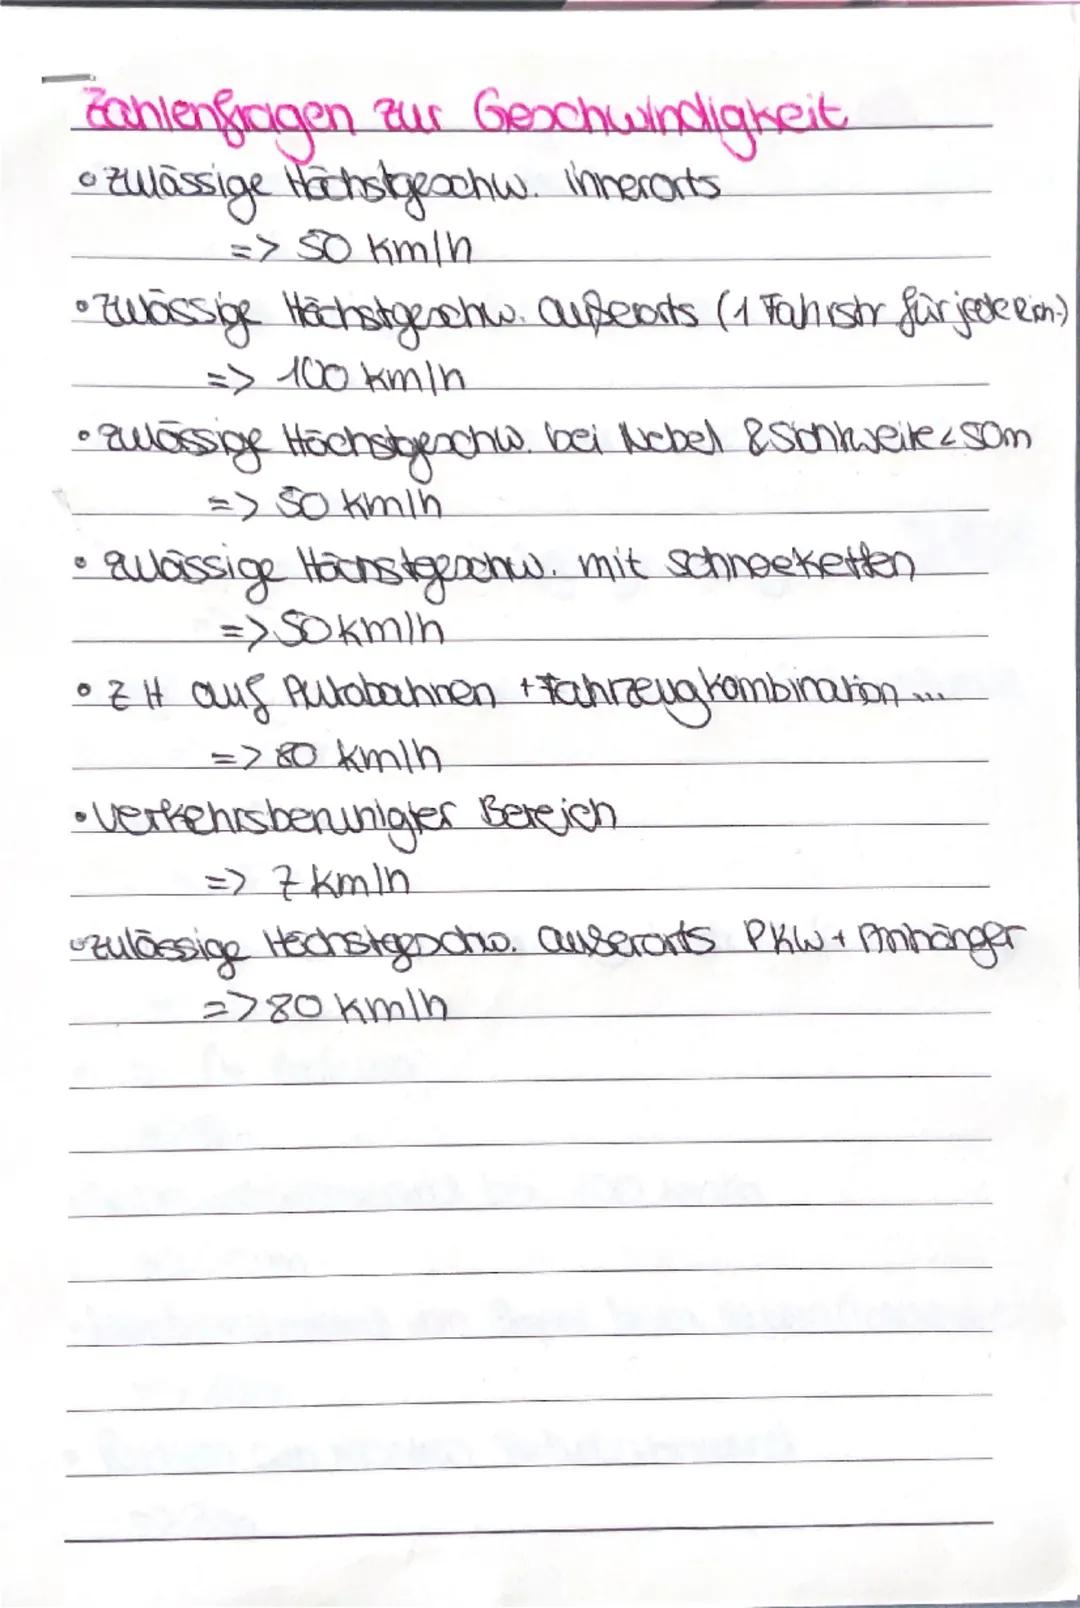 Zahlenfragen zur Geschwindigkeit
• zulässige Höchstgeschw. innerorts
=> 50 km/h
• zulässige Höchstgeschw. außerorts (1 Fahrstr für jede Rich.)
=> 100 km/h
• zulässige Höchstgeschw. bei Nebel & Sichtweite < 50m
=> 50 km/h
• zulässige Höchstgeschw. mit Schneeketten
=> 50 km/h
• Z H auf Autobahnen + Fahrzeugkombination ...
=> 80 km/h
• Verkehrsberuhigter Bereich
=> 7 km/h
• zulässige Höchstgeschw. außerorts PKW + Anhänger
=> 80 km/h